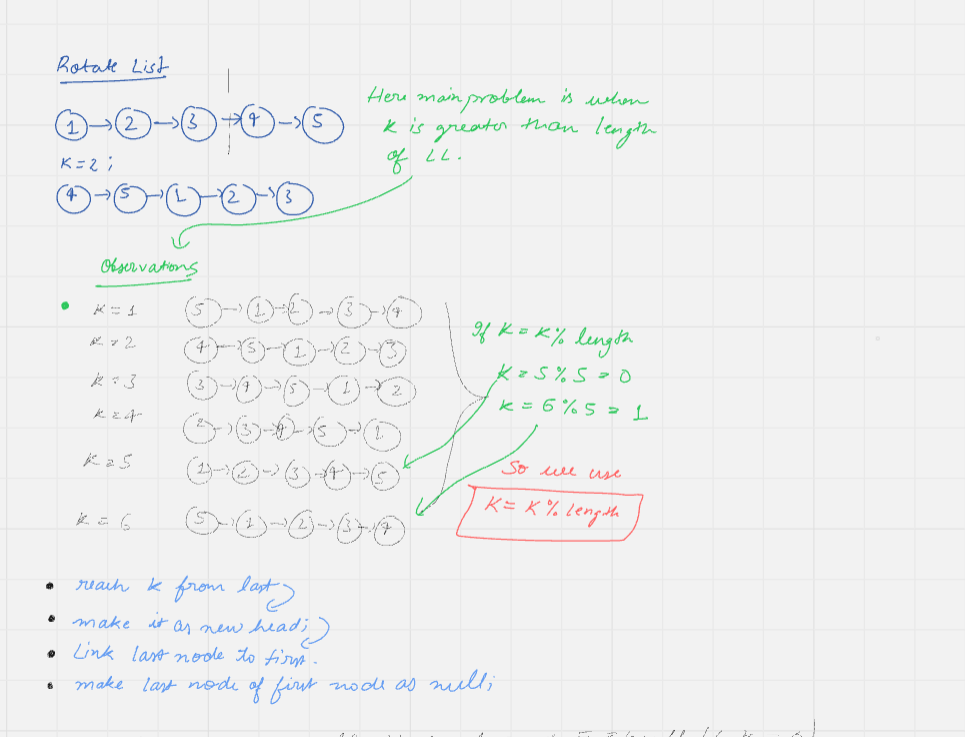 Rotate List
1 → 2 → 3 → 4 → 5
K=2;
4 → 5 → 1 → 2 → 3
Here main problem is when
K is greater than length
of LL.
Observations
K = 1 5 → 1 → 2 → 3 → 4
K = 2 4 → 5 → 1 → 2 → 3
K = 3 3 → 4 → 5 → 1 → 2
K = 4 2 → 3 → 4 → 5 → 1
K = 5 1 → 2 → 3 → 4 → 5
K = 6 5 → 1 → 2 → 3 → 4
If K = K % length
K = 5 % 5 = 0
K = 6 % 5 = 1
So we use
K = K % length
reach K from last
make it as new head;
Link last node to first.
make last node of first node as null;